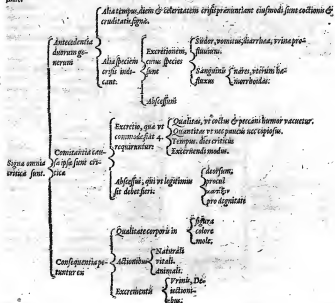 Alia tempus, diem & celeritatem crisis præniunt ante eiusmodi sunt coctionis &
cruditatis signa.
Antecedentia
duorum ge-
nerum
Alia speciem
crisis indi-
cant.
Excretionem,
cuius species
sunt
Sudor, vomitus, diarrhæa, vrinæ pro-
fluuium.
Sanguinis
fluxus
nares, vterum hæ-
morrhoidas.
Abscessum
Signa omnia
critica sunt.
Comitantia cau-
sa ipsa sunt cri-
tica
Excretio, quæ vt
commode fiat 4.
requiruntur
Qualitas, vt coctus & peccans humor vacuetur.
Quantitas vt nec pauca nec copiosa.
Tempus. dies criticus
Excernendi modus.
Abscessus, qui vt legitimus
sit debet fieri:
deorsum,
procul
pro dignitate
Consequentia pe-
tuntur ex
Qualitate corporis in
figura
colore
mole,
Actionibus
Naturali
vitali.
animali.
Excrementis
Vrinis, De-
iectioni-
bus.